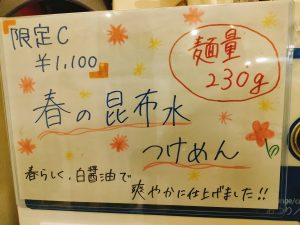 限定C
¥1,100
麺量
230g
春の昆布水
つけめん
春らしく、白醤油で
爽やかに仕上げました!!